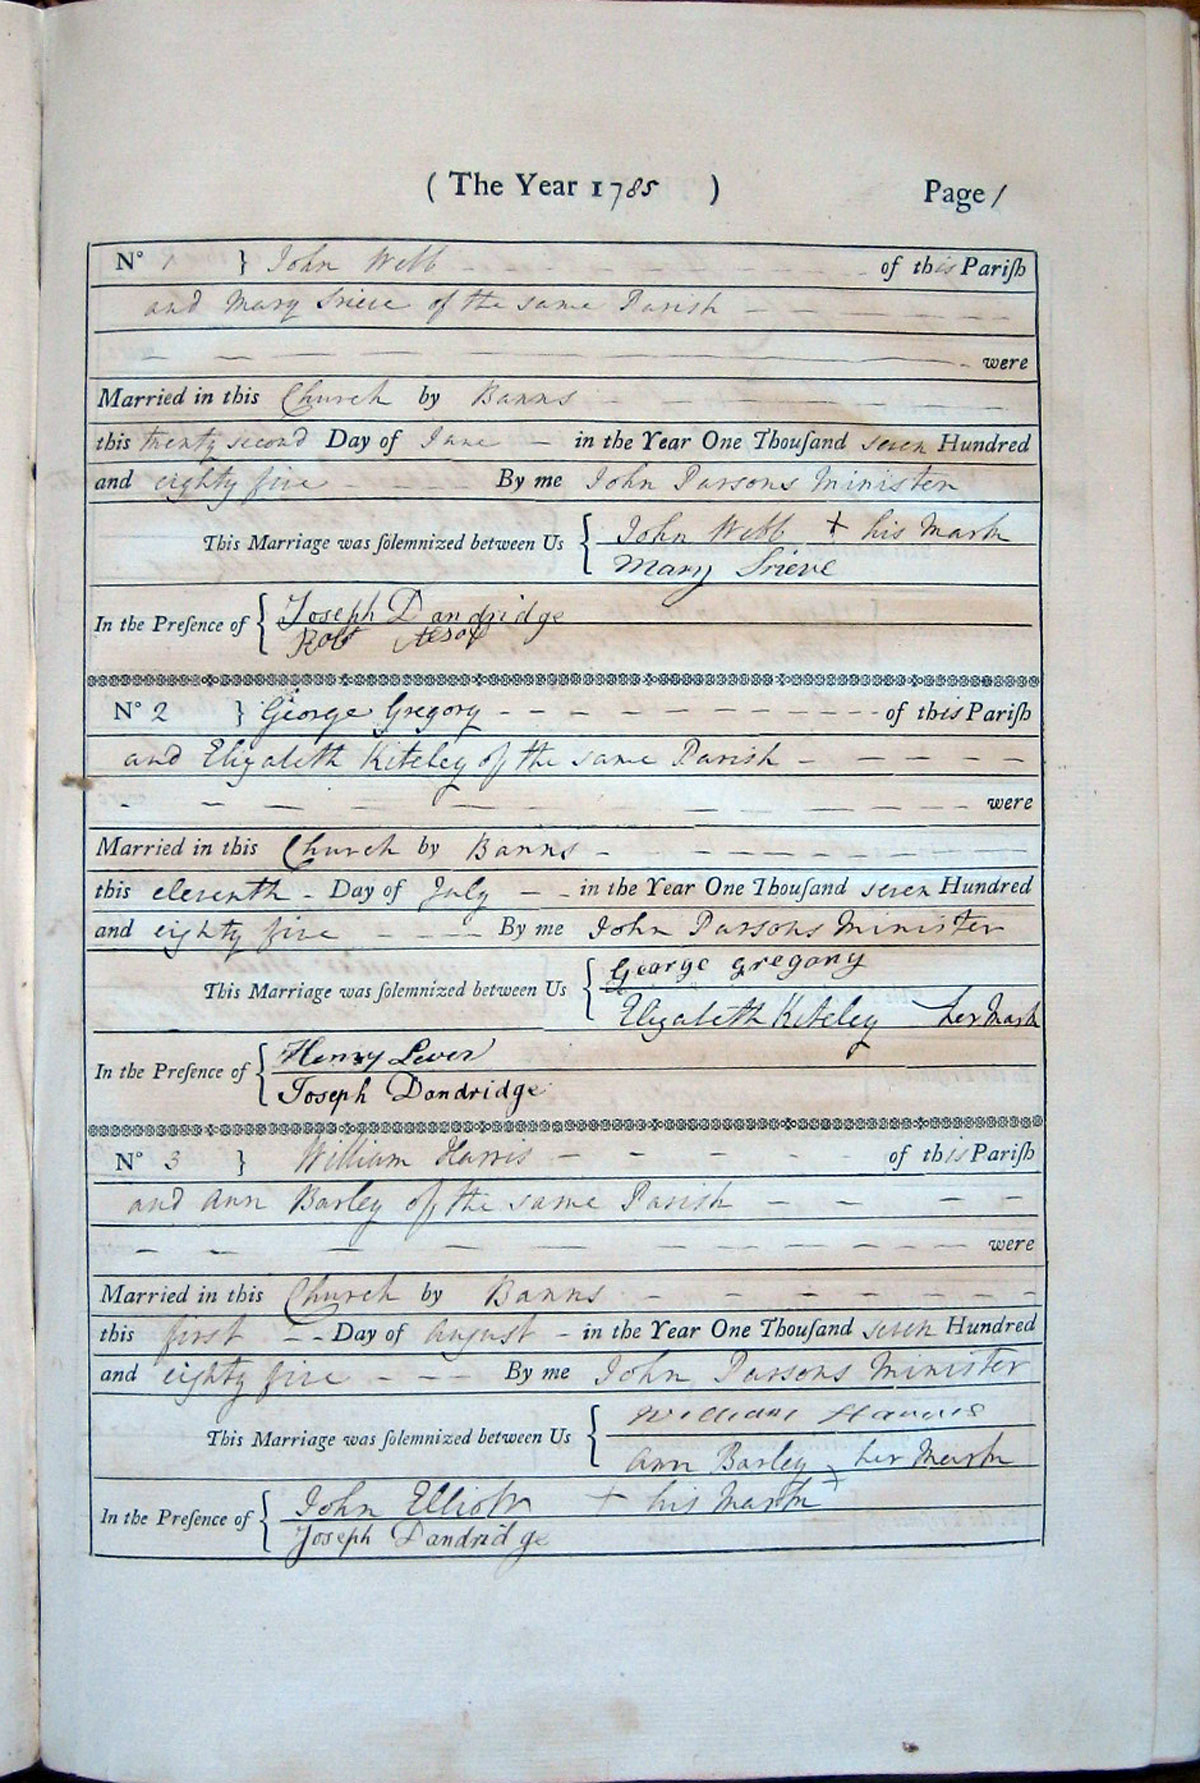 ( The Year 1785 ) Page 1
N° 1 } John Webb of this Pariſh
and Mary Srieve of the same Parish
were
Married in this Church by Banns
this twenty second Day of June in the Year One Thouſand seven Hundred
and eighty five By me John Parsons Minister
This Marriage was ſolemnized between Us { John Webb + his Mark
Mary Srieve
In the Preſence of { Joseph Dandridge
Robt Aesop
N° 2 } George Gregory of this Pariſh
and Elizabeth Kiteley of the same Parish
were
Married in this Church by Banns
this eleventh Day of July in the Year One Thouſand seven Hundred
and eighty five By me John Parsons Minister
This Marriage was ſolemnized between Us { George Gregory
Elizabeth Kiteley her Mark
In the Preſence of { Henry Lever
Joseph Dandridge
N° 3 } William Harris of this Pariſh
and Ann Barley of the same Parish
were
Married in this Church by Banns
this first Day of August in the Year One Thouſand seven Hundred
and eighty five By me John Parsons Minister
This Marriage was ſolemnized between Us { William Harris
Ann Barley + her Mark
In the Preſence of { John Elliott + his Mark
Joseph Dandridge